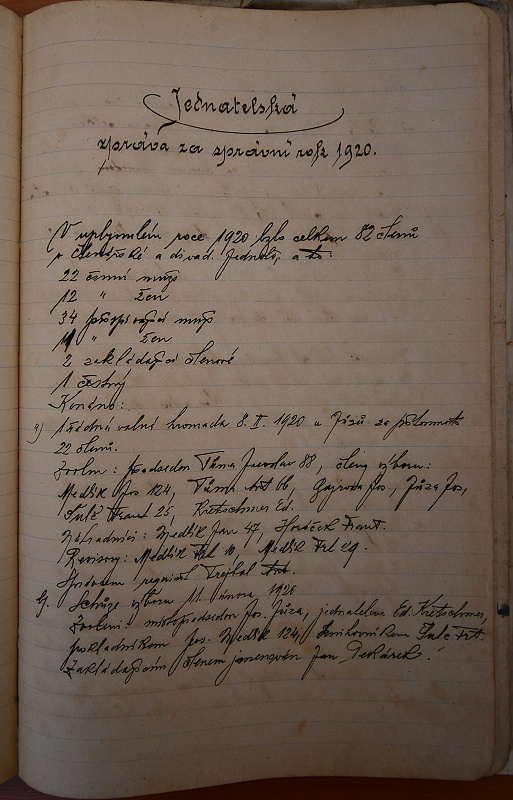 Jednatelská
zpráva za správní rok 1920.
V uplynulém roce 1920 bylo celkem 82 členů
v Čtenářské a divad. Jednotě, a to:
22 činní muži
12 " žen
34 přispívající muži
11 " žen
2 zakládající členové
1 čestný
Konáno:
a) 1 řádná valní hromada 8. II. 1920 u Jízů za přítomnosti
22 členů.
Zvolen: předsedou Tůma Jaroslav 88, členy výboru:
Medlík Jos 124, Tůma Ant 66, Jos., Jůza Jos,
Šulc Frant 25, Kretschmer Ed.
Náhradníci: Medlík Jan 47, Horáček Frant.
Revisory: Medlík 10, Medlík Frt 29.
Správcem Trejbal
b). Schůze výboru 11. února 1920
Zvoleni: místopředsedou Jos. Jůza, jednatelem Ed. Kretschmer,
pokladníkem Jos. Medlík 124, knihovníkem Šulc Frt.
Zakládajícím členem jmenován Jan Pekárek.